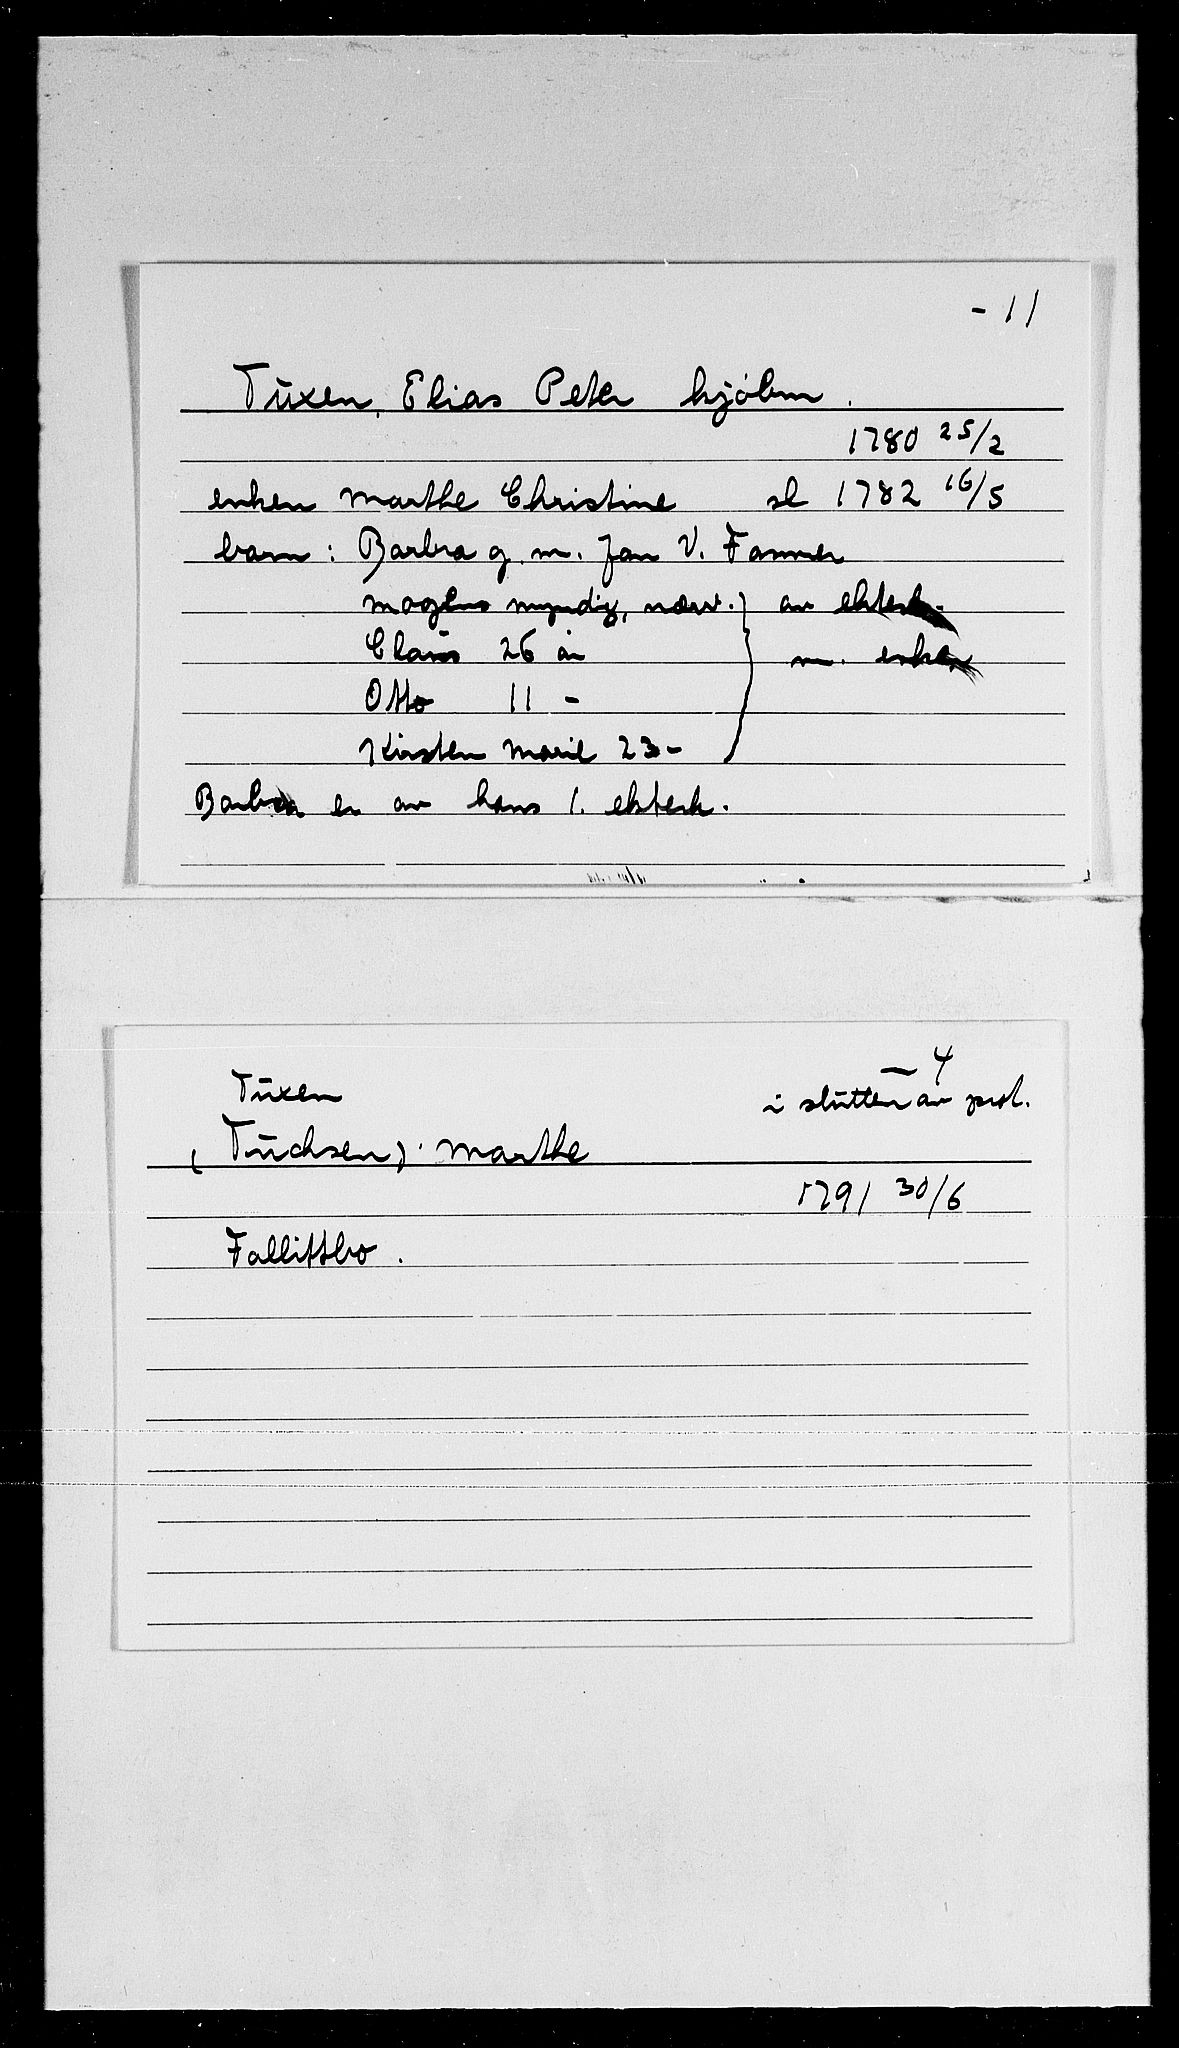 - 11
Tuxen, Elias Peter kjöbm.
1780 25/2
enken Marthe Christine sl 1782 16/5
barn: Barbra g. m. Jan V. Fanner
Mogens myndig, nærv. } av ektesk.
Claus 26 år } m. enken
Otto 11 -
Kirsten Marie 23 -
Barbra er av hans 1. ektesk.
- 4
Tuxen i slutten av prot.
(Tuchsen), Marthe
1791 30/6
Fallittbo.